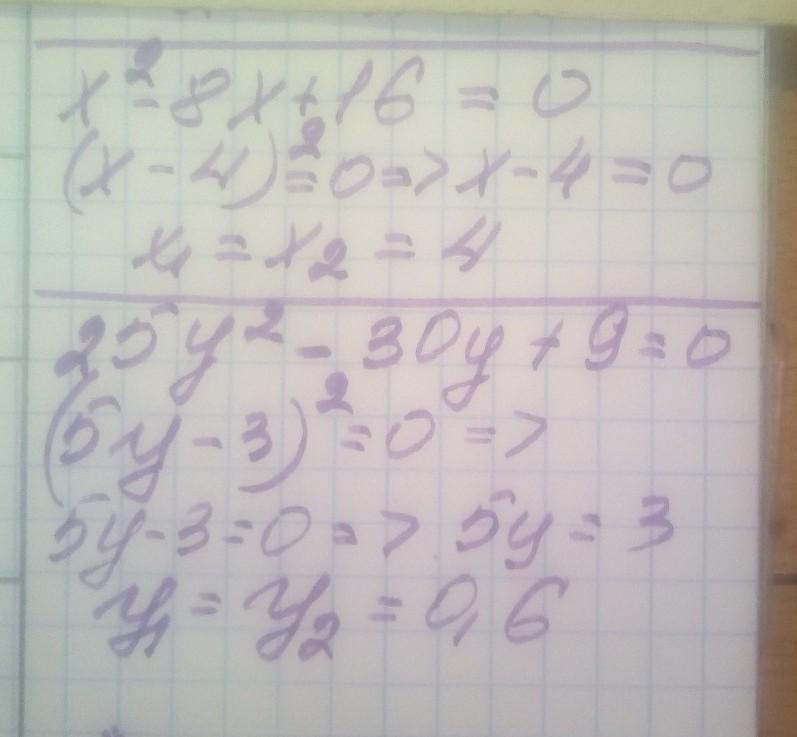 x² - 8x + 16 = 0
(x - 4)² = 0 => x - 4 = 0
x₁ = x₂ = 4
25y² - 30y + 9 = 0
(5y - 3)² = 0 =>
5y - 3 = 0 => 5y = 3
y₁ = y₂ = 0,6